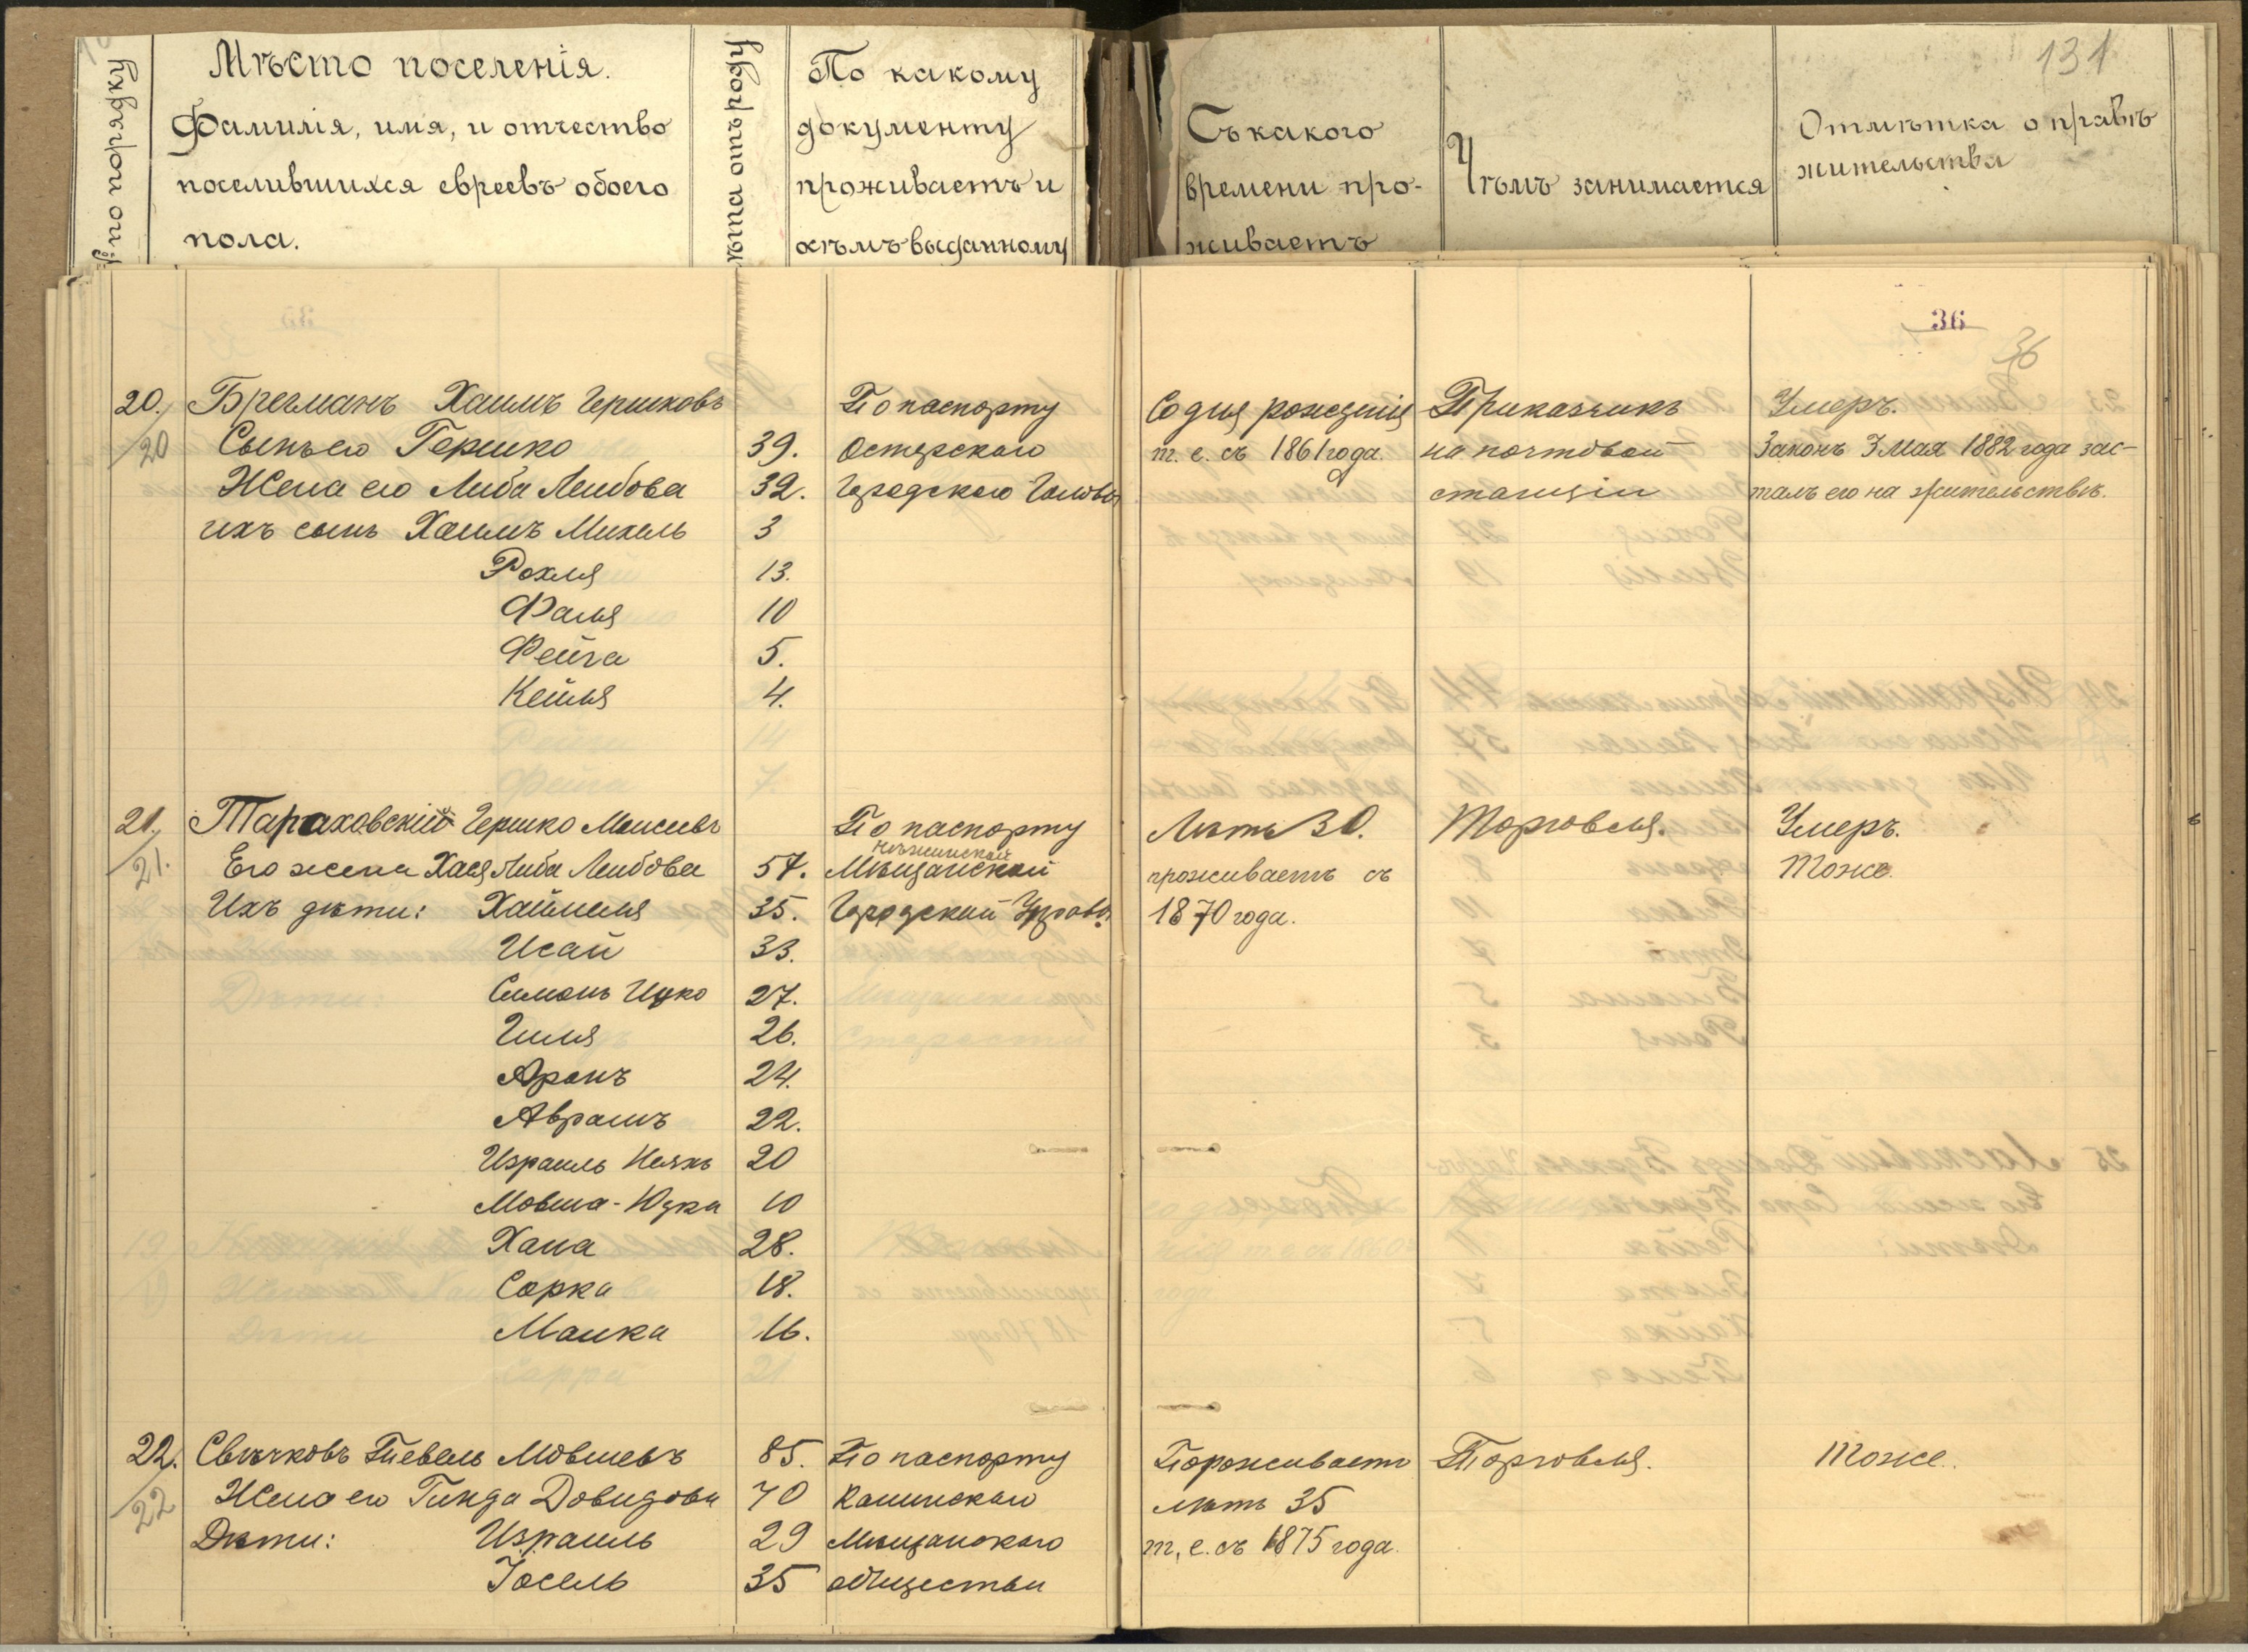 131
№ по порядку
Мѣсто поселенія.
Фамилія, имя, и отчество
поселившихся евреевъ обоего
пола.
Лѣта отъ роду
По какому
документу
проживаетъ и
кѣмъ выданному
Съ какого
времени про-
живаетъ
Чѣмъ занимается
Отмѣтка о правѣ
жительства
36
36
20. Брегманъ Хаимъ Гершковъ По паспорту Со дня рожденія Приказчикъ Умеръ.
20 Сынъ его Гершко 39. Остерскаго т. е. съ 1861 года. на почтовой Законъ 3 Мая 1882 года зас-
Жена его Либа Лейбова 32. Городского Головы станціи талъ его на жительствѣ.
ихъ сынъ Хаимъ Михель 3
Рохля 13.
Фаля 10
Фейга 5.
Кейля 4.
21. Тараховскій Гершко Моисеевъ По паспорту Лѣтъ 30. Торговля. Умеръ.
нѣжинской
21. Его жена Хася Либа Лейбова 57. Мѣщанской проживаетъ съ Тоже.
Ихъ дѣти: Хаймеля 35. Городской Управы. 1870 года.
Исай 33.
Симонъ Ицко 27.
Гиля 26.
Аронъ 24.
Аврамъ 22.
Израиль Ноахъ 20
Мовша-Юдка 10
Хана 28.
Сорка 18.
Манка 16.
22. Свѣчковъ Певель Мовшевъ 85. По паспорту Проживаетъ Торговля. Тоже.
22 Жена его Гинда Довидова 70 лѣтъ 35
Дѣти: Израиль 29 Мѣщанскаго т. е. съ 1875 года.
Іосель 35 общества